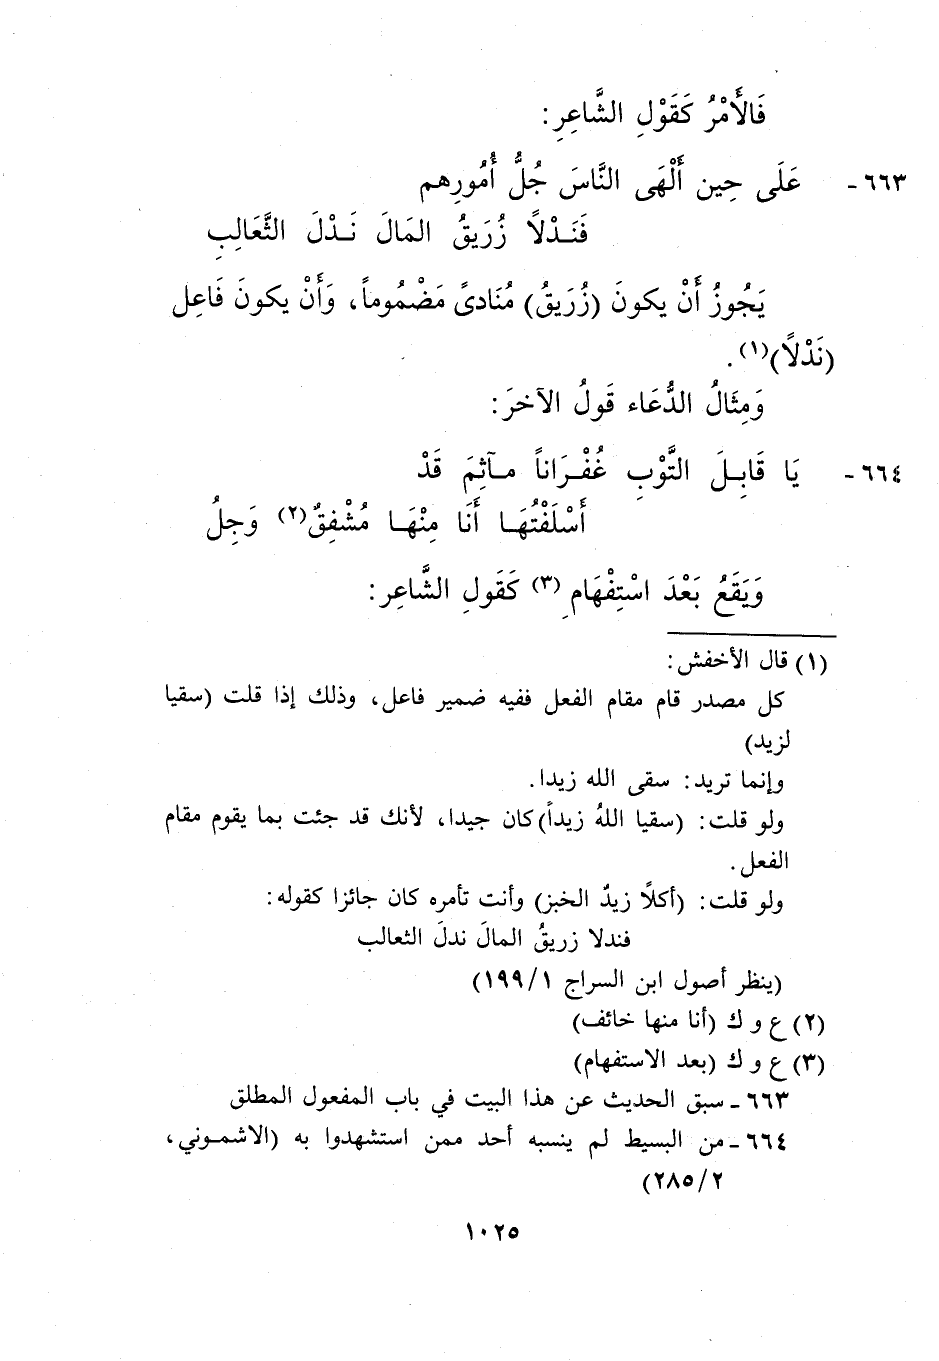 فَالأَمْرُ كَقَوْلِ الشَّاعِرِ:
٦٦٣ - عَلَى حِين أَلْهَى النَّاسَ جُلُّ أُمُورِهم
فَنَـدْلًا زُرَيقُ المَالَ نَـدْلَ الثَّعَالِبِ
يَجُوزُ أَنْ يكونَ (زُرَيقُ) مُنَادىً مَضْمُوماً، وَأَنْ يكونَ فَاعِل
(نَدْلًا)(١).
وَمِثَالُ الدُّعَاء قَولُ الآخرَ:
٦٦٤ - يَا قَابِـلَ التَّوْبِ غُفْـرَاناً مـآثِمَ قَدْ
أَسْلَفْتُهَـا أَنَا مِنْهَـا مُشْفِقٌ(٢) وَجِلُ
وَيَقَعُ بَعْدَ اسْتِفْهَامٍ(٣) كَقَولِ الشَّاعِر:
(١) قال الأخفش:
كل مصدر قام مقام الفعل ففيه ضمير فاعل، وذلك إذا قلت (سقيا
لزيد)
وإنما تريد: سقى الله زيدا.
ولو قلت: (سقيا اللهُ زيداً) كان جيدا، لأنك قد جئت بما يقوم مقام
الفعل.
ولو قلت: (أكلًا زيدٌ الخبز) وأنت تأمره كان جائزا كقوله:
فندلا زريقُ المالَ ندلَ الثعالب
(ينظر أصول ابن السراج ١/١٩٩)
(٢) ع و ك (أنا منها خائف)
(٣) ع و ك (بعد الاستفهام)
٦٦٣ - سبق الحديث عن هذا البيت في باب المفعول المطلق
٦٦٤ - من البسيط لم ينسبه أحد ممن استشهدوا به (الاشمـوني،
٢/٢٨٥)
١٠٢٥